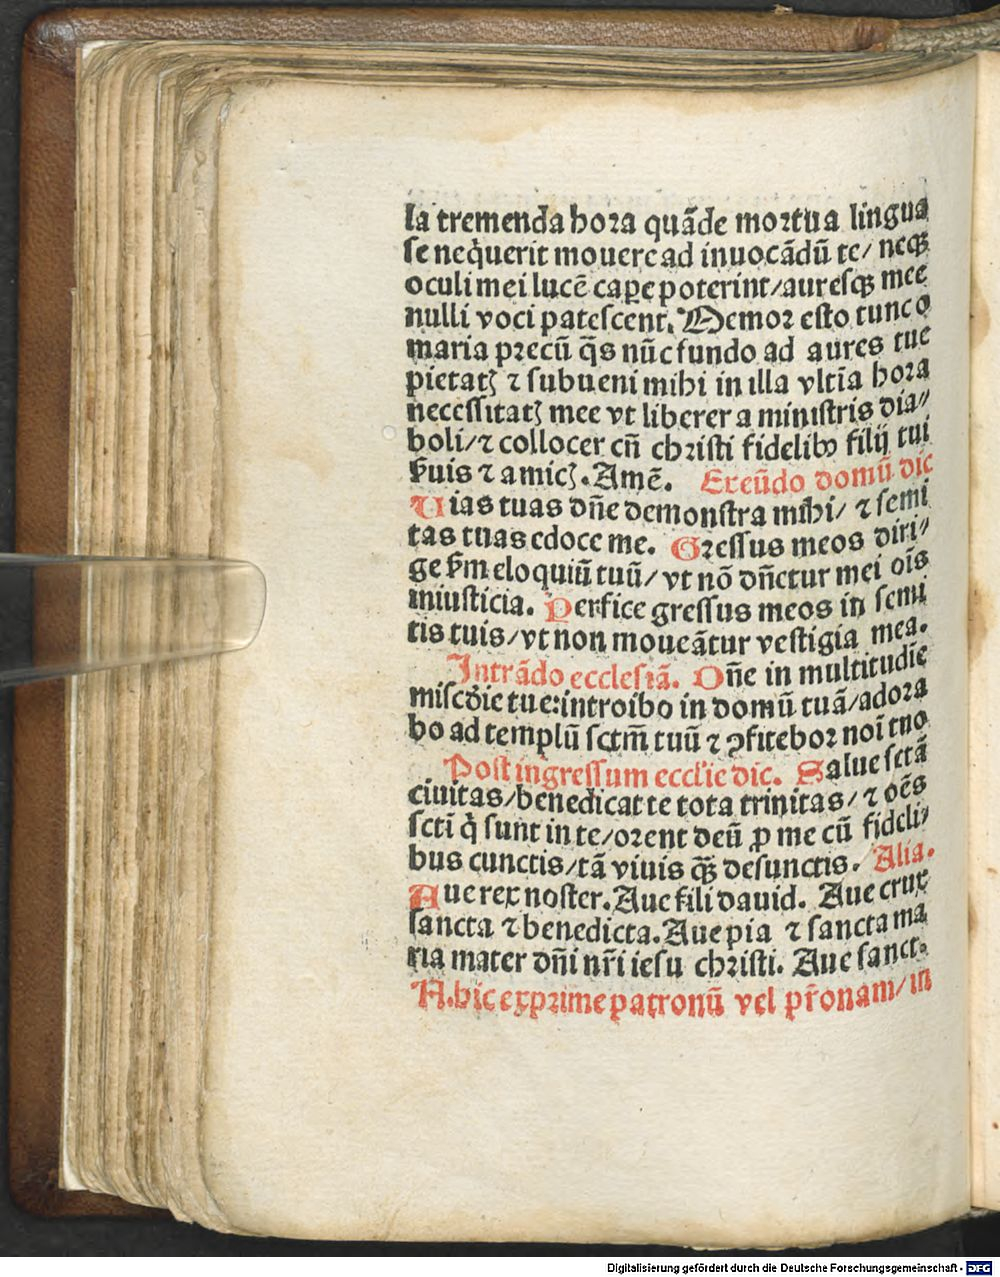 la tremenda hora quãde mortua lingua
se neq̇uerit mouere ad inuocãdũ te/ neqꝫ
oculi mei lucẽ caꝑe poterint/auresqꝫ mee
nulli voci patescent. Memor esto tunc o
maria precũ q̃s nũc fundo ad aures tue
pietatꝭ ⁊ subueni mihi in illa vltĩa hora
necessitatꝭ mee vt liberer a ministris dia//
boli/⁊ collocer cũ christi fidelibꝰ filij tui
ẜuis ⁊ amicꝭ. Amẽ. Exeũdo domũ dic
Uias tuas dñe demonstra mihi/ ⁊ semi
tas tuas edoce me. Gressus meos diri//
ge ẜm eloquiũ tuũ/ vt nõ dñetur mei oĩs
iniusticia. Perfice gressus meos in semi
tis tuis/vt non moueãtur vestigia mea.
Intrãdo ecclesiã. Dñe in multitudĩe
misc̃die tue:introibo in domũ tuã/adora
bo ad templũ sctm̃ tuũ ⁊ ꝯfitebor noĩ tuo
Post ingressum eccl'ie dic. Salue sctã
ciuitas/benedicat te tota trinitas/ ⁊ oẽs
sctĩ q̇ sunt in te/orent deũ ꝓ me cũ fideli//
bus cunctis/tã viuis qꝫ̃ defunctis. Alia.
Aue rex noster. Aue fili dauid. Aue crux
sancta ⁊ benedicta. Aue pia ⁊ sancta ma
ria mater dñi nr̃i iesu christi. Aue sanct.
N. hic exprime patronũ vel pr̃onam/ in
Digitalisierung gefördert durch die Deutsche Forschungsgemeinschaft - DFG